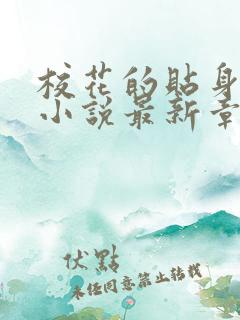 校花的貼身
小說最新章
伏點
未経同意禁止轉載